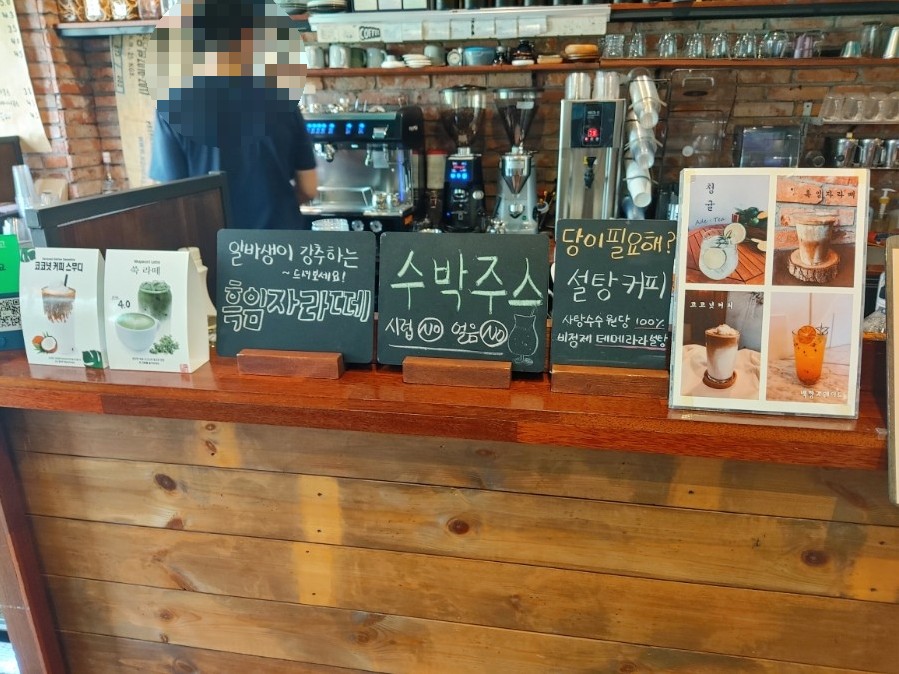 코코넛 커피 스무디
쑥 라떼
4.0
알바생이 강추하는
~드셔보세요!
흑임자라떼
수박주스
시럽 NO 얼음 NO
당이필요해?
설탕 커피
사탕수수 원당 100%
비정제 데메라라설탕
청귤
Ade · Tea
흑임자라떼
코코넛커피
COFFEE